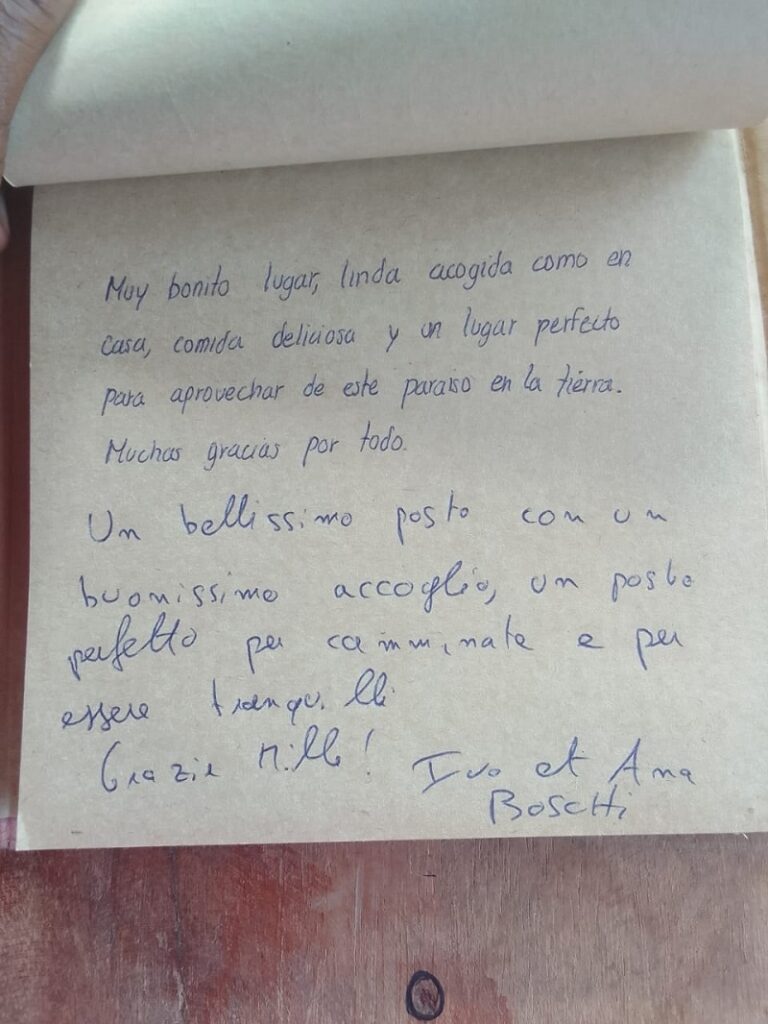 Muy bonito lugar, linda acogida como en
casa, comida deliciosa y un lugar perfecto
para aprovechar de este paraiso en la tierra.
Muchas gracias por todo.
Un bellissimo posto con un
buonissimo accoglio, un posto
perfetto per camminate e per
essere tranquilli
Grazie Mille!
Ivo et Ana
Boschi